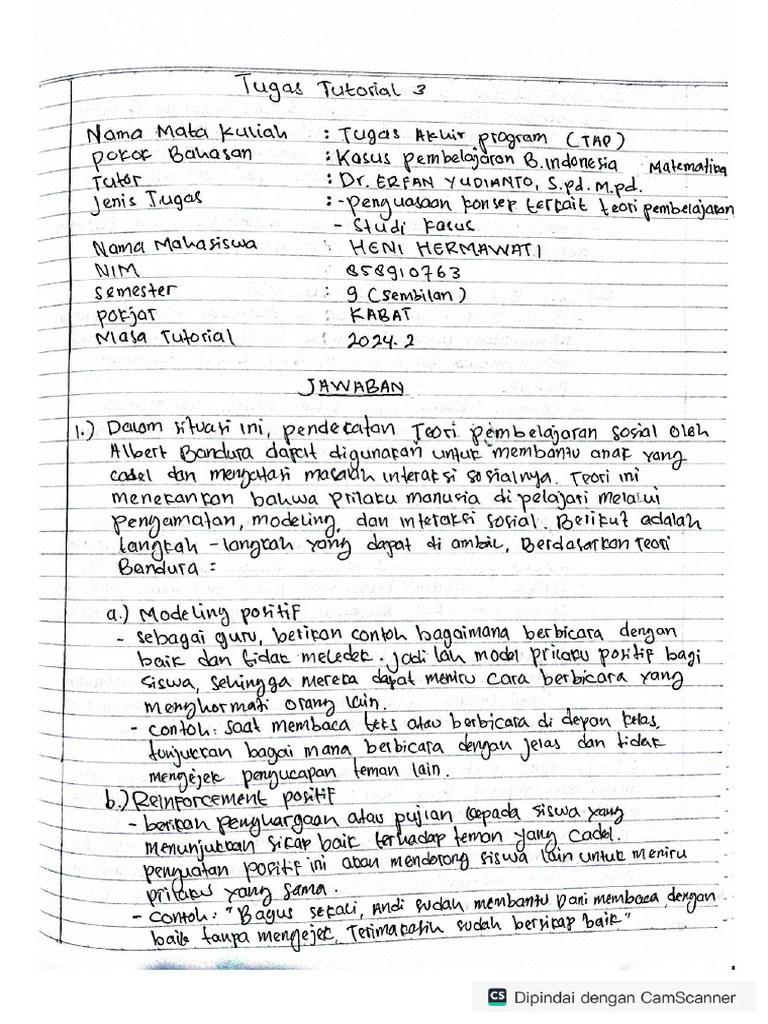 Tugas Tutorial 3
Nama Mata Kuliah : Tugas Akhir program (TAP)
pokok Bahasan : Kasus pembelajaran B. Indonesia Matematika
Tutor : Dr. ERFAN YUDIANTO, S.pd. M.pd.
Jenis Tugas : - penguasaan konsep terkait teori pembelajaran
- Studi kasus
Nama Mahasiswa : HENI HERMAWATI
NIM : 858910763
Semester : 9 (Sembilan)
pokjar : KABAT
Masa Tutorial : 2024.2
JAWABAN
1.) Dalam situasi ini, pendekatan Teori pembelajaran sosial oleh
Albert Bandura dapat digunakan untuk membantu anak yang
cadel dan mengatasi masalah interaksi sosialnya. Teori ini
menekankan bahwa prilaku manusia di pelajari melalui
pengamatan, modeling, dan interaksi sosial. Berikut adalah
langkah - langkah yang dapat di ambil, Berdasarkan Teori
Bandura :
a.) Modeling positif
- sebagai guru, berikan contoh bagaimana berbicara dengan
baik dan tidak meledek. jadi lah model prilaku positif bagi
siswa, sehingga mereka dapat meniru cara berbicara yang
menghormati orang lain.
- contoh: saat membaca teks atau berbicara di depan kelas,
tunjukkan bagai mana berbicara dengan jelas dan tidak
mengejek pengucapan teman lain.
b.) Reinforcement positif
- berikan penghargaan atau pujian kepada siswa yang
menunjukkan sikap baik terhadap teman yang cadel.
penguatan positif ini akan mendorong siswa lain untuk meniru
prilaku yang sama.
- contoh: "Bagus sekali, Andi sudah membantu Dani membaca dengan
baik tanpa mengejek, Terimakasih sudah bersikap baik"
CS Dipindai dengan CamScanner